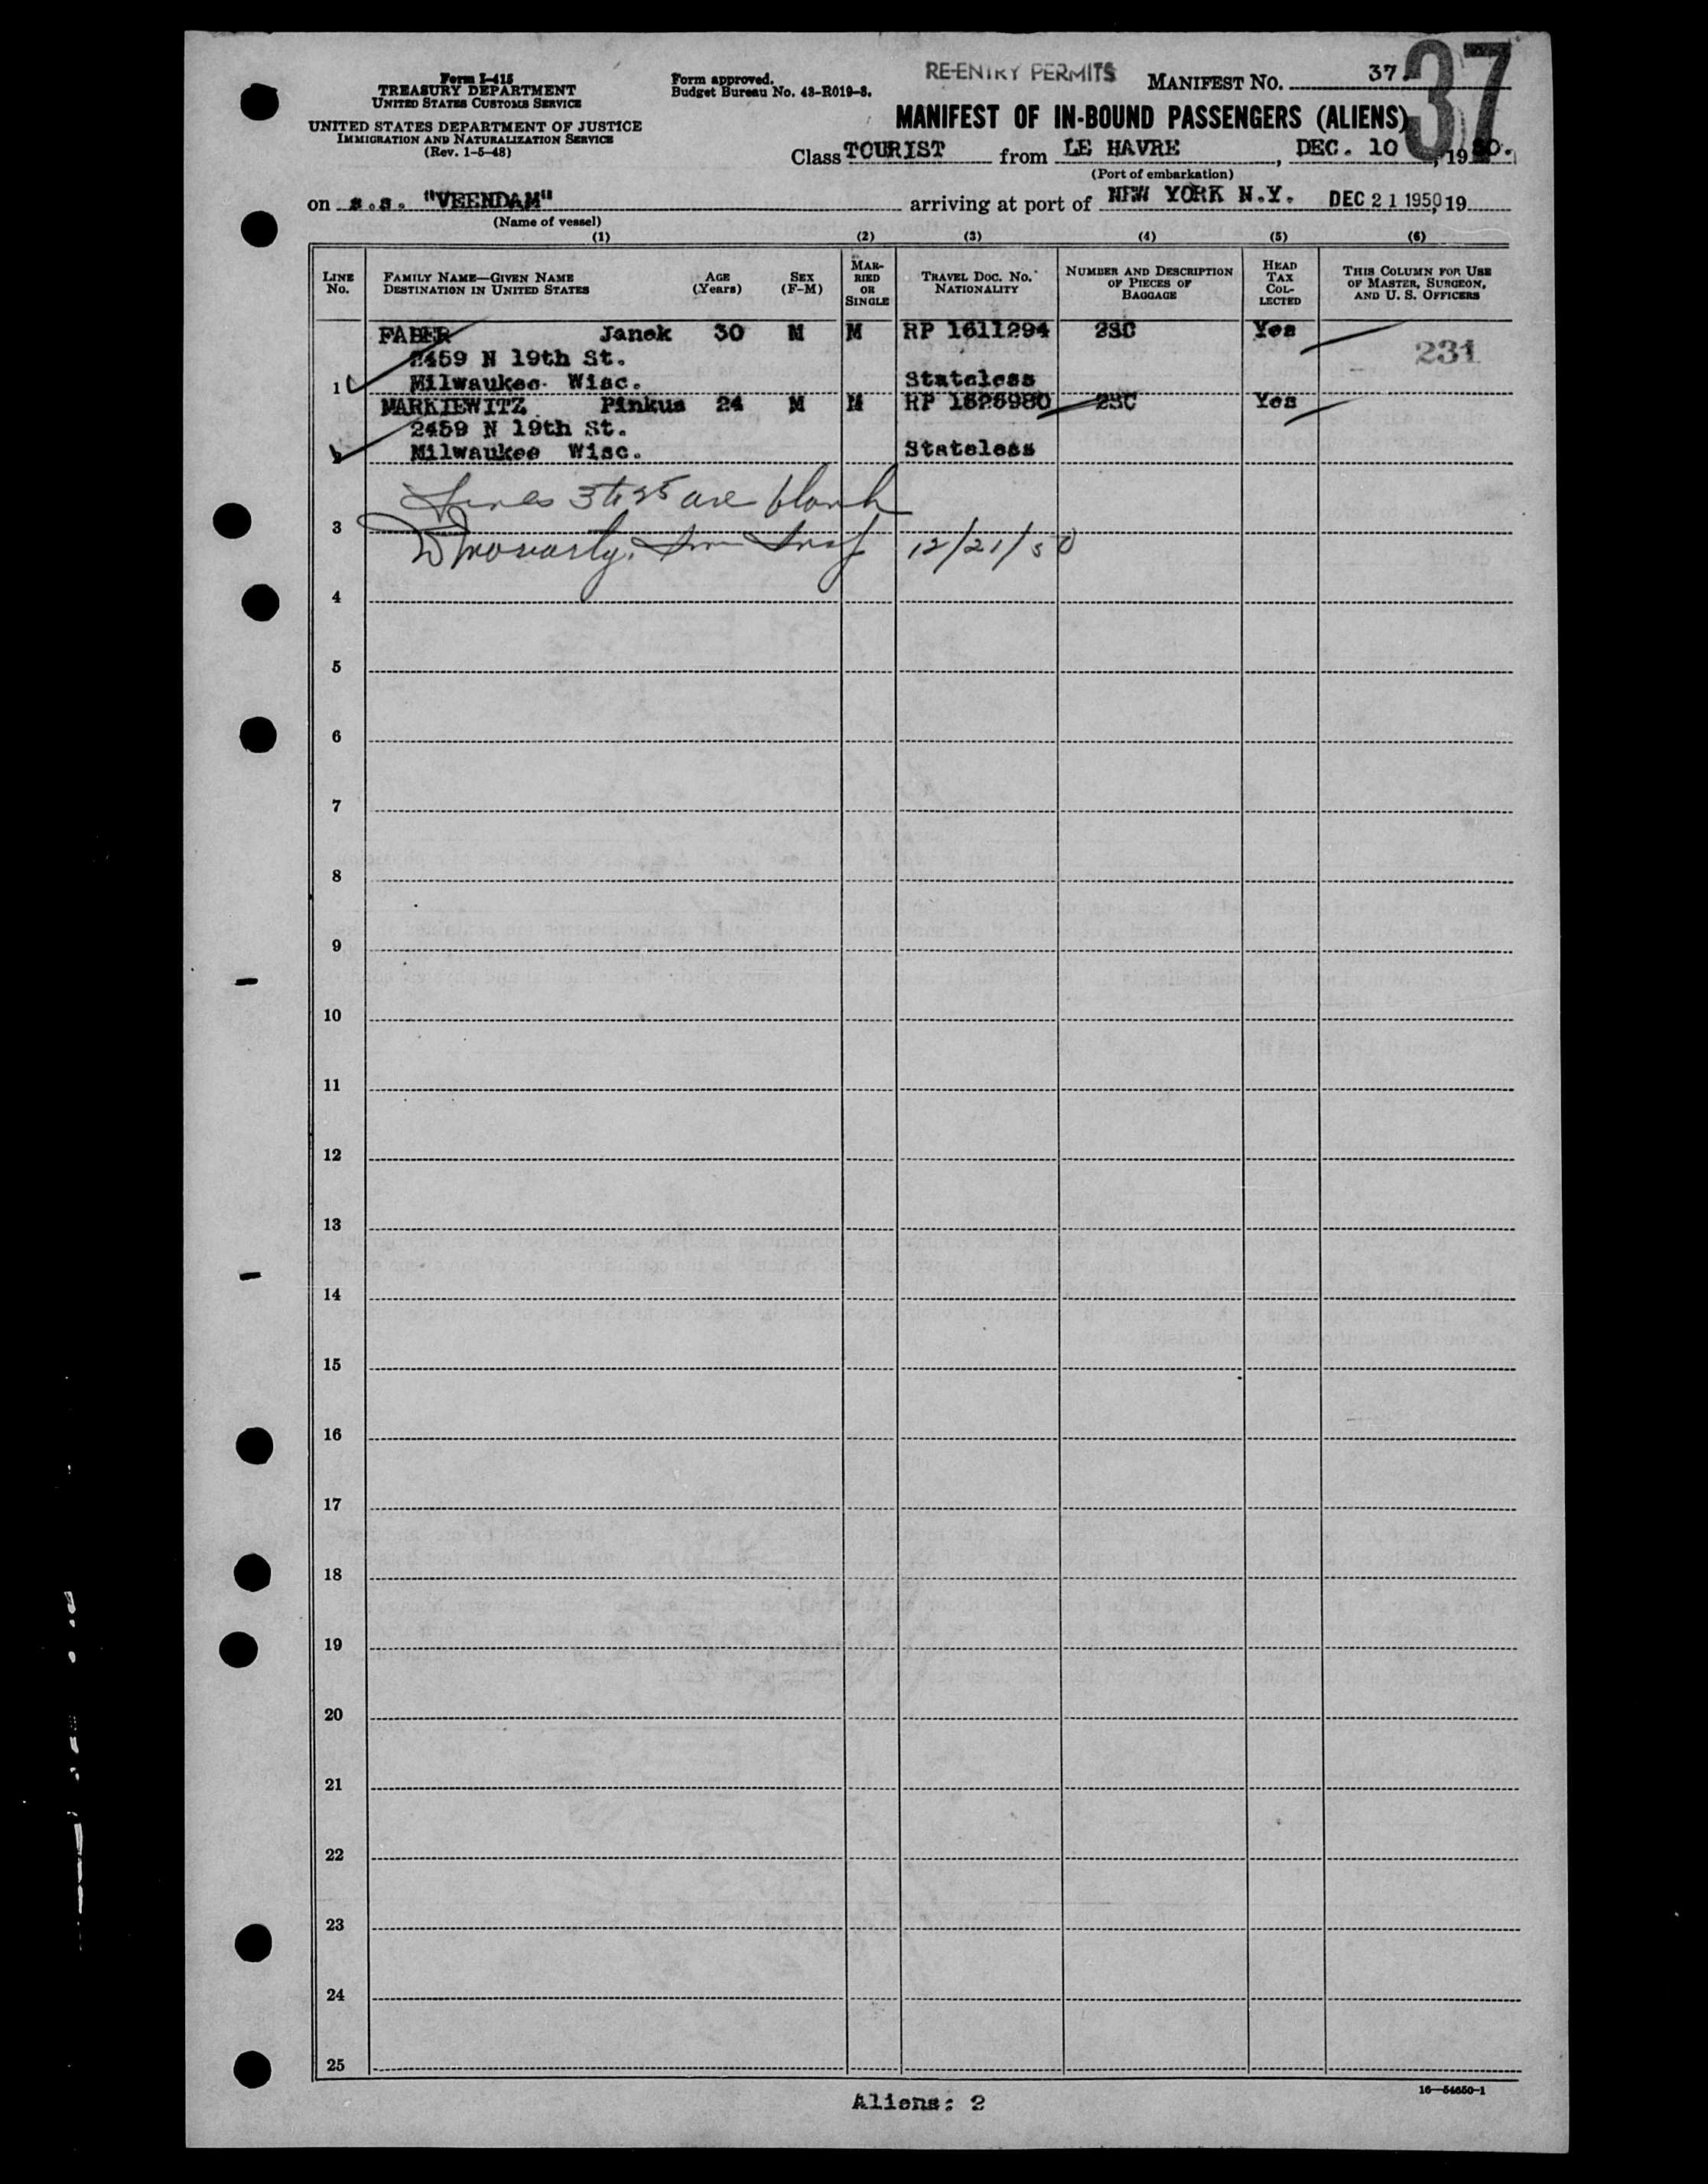 RE-ENTRY PERMITS
Form I-415
TREASURY DEPARTMENT
UNITED STATES CUSTOMS SERVICE
UNITED STATES DEPARTMENT OF JUSTICE
IMMIGRATION AND NATURALIZATION SERVICE
(Rev. 1-5-48)
Form approved.
Budget Bureau No. 43-R019-3.
MANIFEST NO. 37.
37
MANIFEST OF IN-BOUND PASSENGERS (ALIENS)
Class TOURIST from LE HAVRE, DEC. 10, 1950.
(Port of embarkation)
on s.s. "VEENDAM" arriving at port of NEW YORK N.Y. DEC 21 1950, 19
(Name of vessel)
(1) (2) (3) (4) (5) (6)
LINE No. FAMILY NAME—GIVEN NAME DESTINATION IN UNITED STATES AGE (Years) SEX (F-M) MARRIED OR SINGLE TRAVEL DOC. NO. NATIONALITY NUMBER AND DESCRIPTION OF PIECES OF BAGGAGE HEAD TAX COLLECTED THIS COLUMN FOR USE OF MASTER, SURGEON, AND U. S. OFFICERS
FABER Janek 30 M M RP 1611294 2SC Yes
2459 N 19th St. 231
1 Milwaukee Wisc. Stateless
MARKIEWITZ Pinkus 24 M M RP 1525980 2SC Yes
2459 N 19th St.
2 Milwaukee Wisc. Stateless
Lines 3 to 25 are blank
3
12/21/50
4
5
6
7
8
9
10
11
12
13
14
15
16
17
18
19
20
21
22
23
24
25
16—54650-1
Aliens: 2